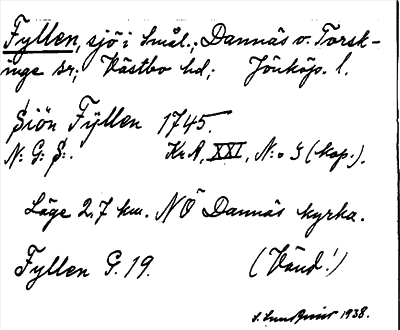 Fyllen, sjö i Smål.; Dannäs o. Torsk-
inge sr; Västbo hd; Jönköp. l.
Siön Fÿllen 1745.
N: G: S:. KrA, XXI, N:o 3 (kop.).
Läge 2.7 km. NÖ Dannäs kyrka.
Fyllen G. 19. (Vänd!)
1938.